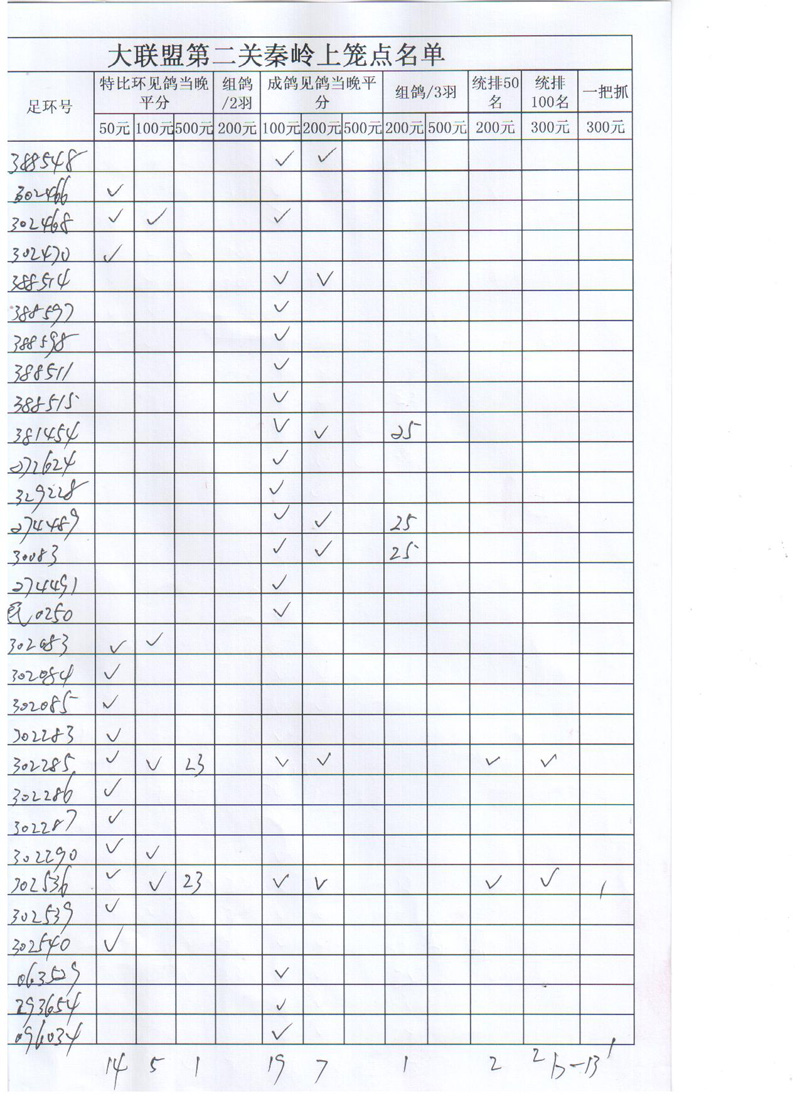 大联盟第二关秦岭上笼点名单
足环号 特比环见鸽当晚平分 组鸽/2羽 成鸽见鸽当晚平分 组鸽/3羽 统排50名 统排100名 一把抓
50元 100元 500元 200元 100元 200元 500元 200元 500元 200元 300元 300元
388548 ✓ ✓
302466 ✓
302468 ✓ ✓ ✓
302470 ✓
388514 ✓ ✓
388597 ✓
388598 ✓
388511 ✓
388515 ✓
381454 ✓ ✓ 25
072624 ✓
329228 ✓
274489 ✓ ✓ 25
30083 ✓ ✓ 25
274491 ✓
0250 ✓
302083 ✓ ✓
302084 ✓
302085 ✓
302283 ✓
302285 ✓ ✓ 23 ✓ ✓ ✓ ✓
302286 ✓
302287 ✓
302290 ✓ ✓
302536 ✓ ✓ 23 ✓ ✓ ✓ ✓ 1
302539 ✓
302540 ✓
063529 ✓
293654 ✓
096034 ✓
14 5 1 19 7 1 2 2 1